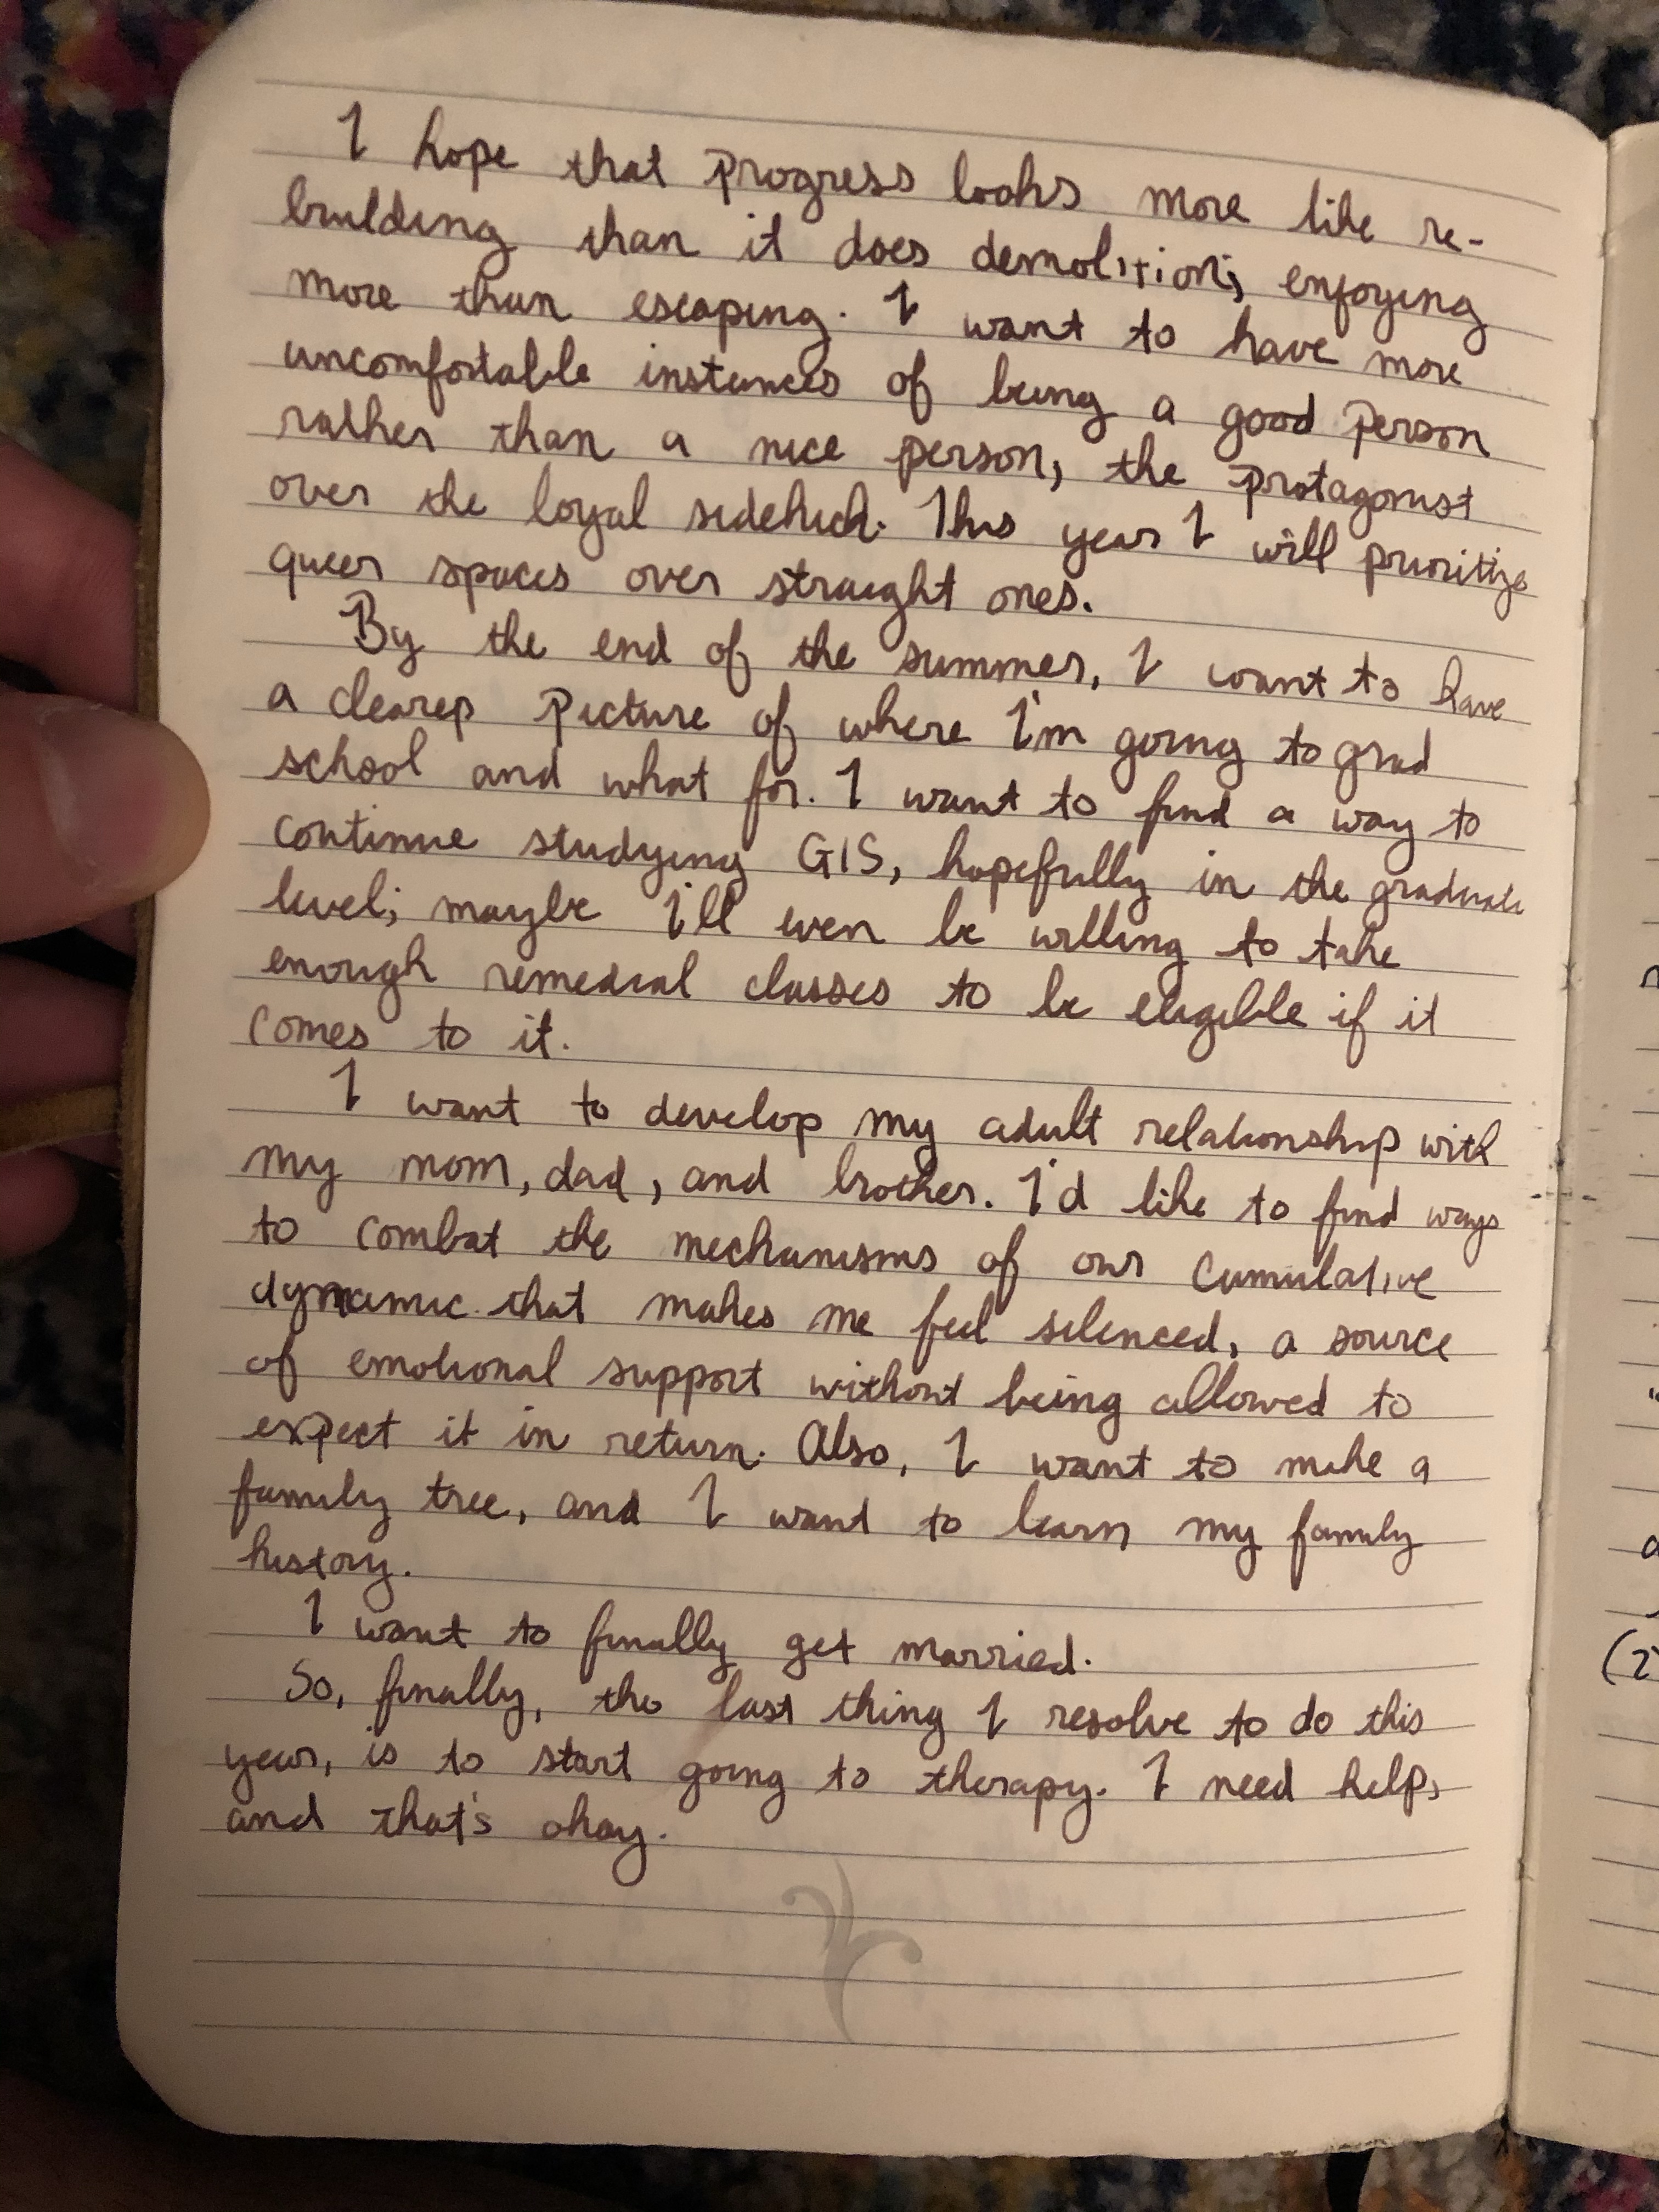 I hope that progress looks more like re-
building than it does demolition; enjoying
more than escaping. I want to have more
uncomfortable instances of being a good person
rather than a nice person, the protagonist
over the loyal sidekick. This year I will prioritize
queer spaces over straight ones.
By the end of the summer, I want to have
a clearer picture of where I'm going to grad
school and what for. I want to find a way to
continue studying GIS, hopefully in the graduate
level; maybe I'll even be willing to take
enough remedial classes to be eligible if it
comes to it.
I want to develop my adult relationship with
my mom, dad, and brother. I'd like to find ways
to combat the mechanisms of our cumulative
dynamic that makes me feel silenced, a source
of emotional support without being allowed to
expect it in return. Also, I want to make a
family tree, and I want to learn my family
history.
I want to finally get married.
So, finally, the last thing I resolve to do this
year, is to start going to therapy. I need help,
and that's okay.
(2